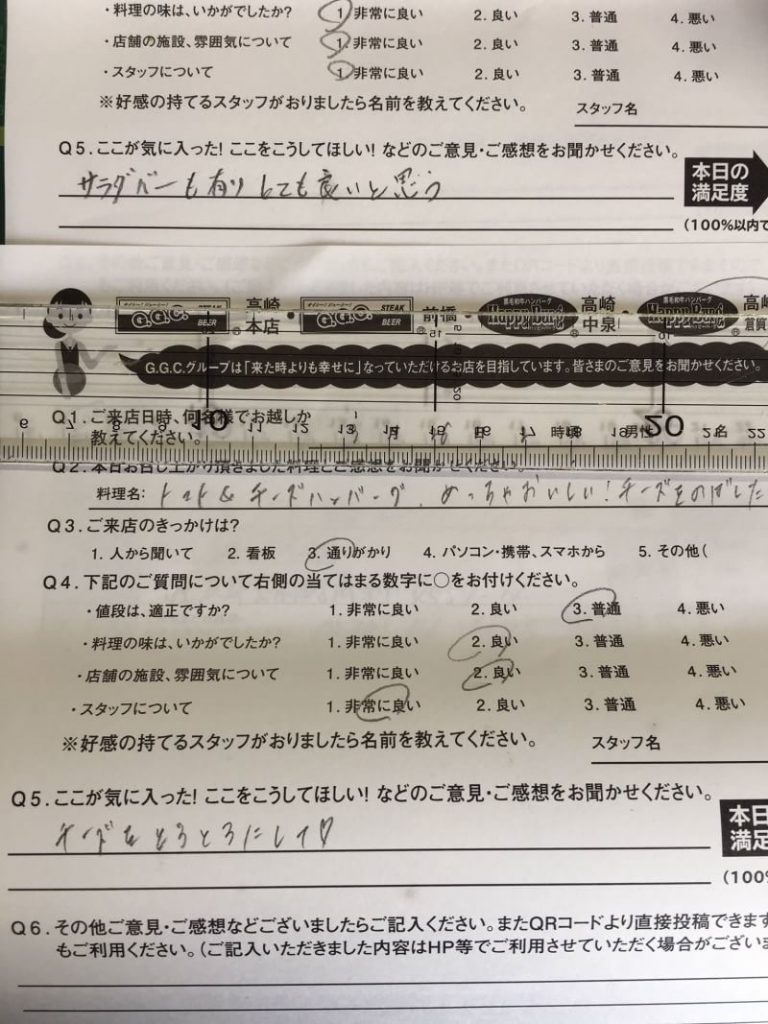 ・料理の味は、いかがでしたか? 1.非常に良い 2.良い 3.普通 4.悪い
・店舗の施設、雰囲気について 1.非常に良い 2.良い 3.普通 4.悪い
・スタッフについて 1.非常に良い 2.良い 3.普通 4.悪い
※好感の持てるスタッフがおりましたら名前を教えてください。 スタッフ名
Q5.ここが気に入った!ここをこうしてほしい!などのご意見・ご感想をお聞かせください。
サラダバーも有りとても良いと思う
本日の
満足度
(100%以内で
G.G.C. BEER 高崎本店・G.G.C. STEAK BEER 前橋 黒毛和牛ハンバーグ 高崎中泉 黒毛和牛ハンバーグ 高崎
G.G.C.グループは「来た時よりも幸せに」なっていただけるお店を目指しています。皆さまのご意見をお聞かせください。
Q1.ご来店日時、何名様でお越しか
教えてください。 月 時頃 男性 名
6 7 8 9 10 11 12 13 15 16 17 18 19 20 21 22
Q2.本日お召し上がり頂きました料理とご感想をお聞かせください。
料理名: トマト&チーズハンバーグ、めっちゃおいしい!チーズをのばした
Q3.ご来店のきっかけは?
1.人から聞いて 2.看板 3.通りがかり 4.パソコン・携帯、スマホから 5.その他(
Q4.下記のご質問について右側の当てはまる数字に○をお付けください。
・値段は、適正ですか? 1.非常に良い 2.良い 3.普通 4.悪い
・料理の味は、いかがでしたか? 1.非常に良い 2.良い 3.普通 4.悪い
・店舗の施設、雰囲気について 1.非常に良い 2.良い 3.普通 4.悪い
・スタッフについて 1.非常に良い 2.良い 3.普通 4.悪い
※好感の持てるスタッフがおりましたら名前を教えてください。 スタッフ名
Q5.ここが気に入った!ここをこうしてほしい!などのご意見・ご感想をお聞かせください。
チーズをとろとろにして♡
本日
満足
(100%
Q6.その他ご意見・ご感想などございましたらご記入ください。またQRコードより直接投稿できます
もご利用ください。(ご記入いただきました内容はHP等でご利用させていただく場合がございま